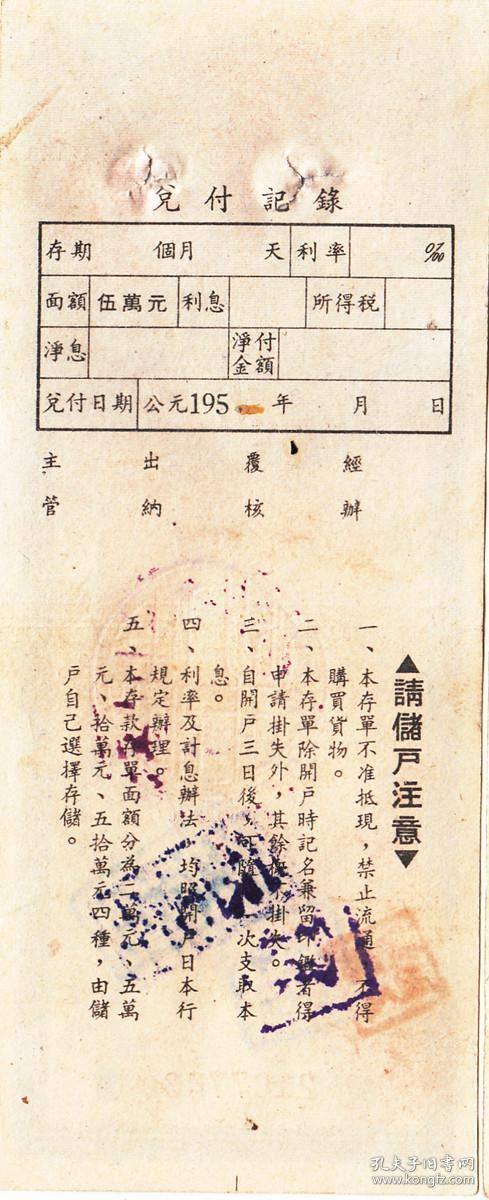 兌付記錄
存期 個月 天 利率 ‰
面額 伍萬元 利息 所得税
淨息 淨付金額
兌付日期 公元195 年 月 日
主管 出納 覆核 經辦
▲請儲戶注意▼
一、本存單不准抵現，禁止流通 不得
購買貨物。
二、本存單除開戶時記名兼留印鑑者得
申請掛失外，其餘 掛失。
三、自開戶三日後，可隨 一次支取本
息。
四、利率及計息辦法，均照開戶日本行
規定辦理。
五、本存款存單面額分為二萬元、五萬
元、拾萬元、五拾萬元四種，由儲
戶自己選擇存儲。
孔夫子旧书网
www.kongfz.com